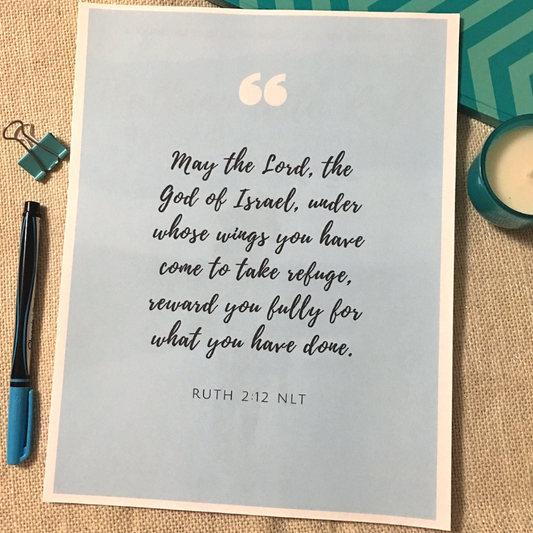 May the Lord, the
God of Israel, under
whose wings you have
come to take refuge,
reward you fully for
what you have done.
RUTH 2:12 NLT